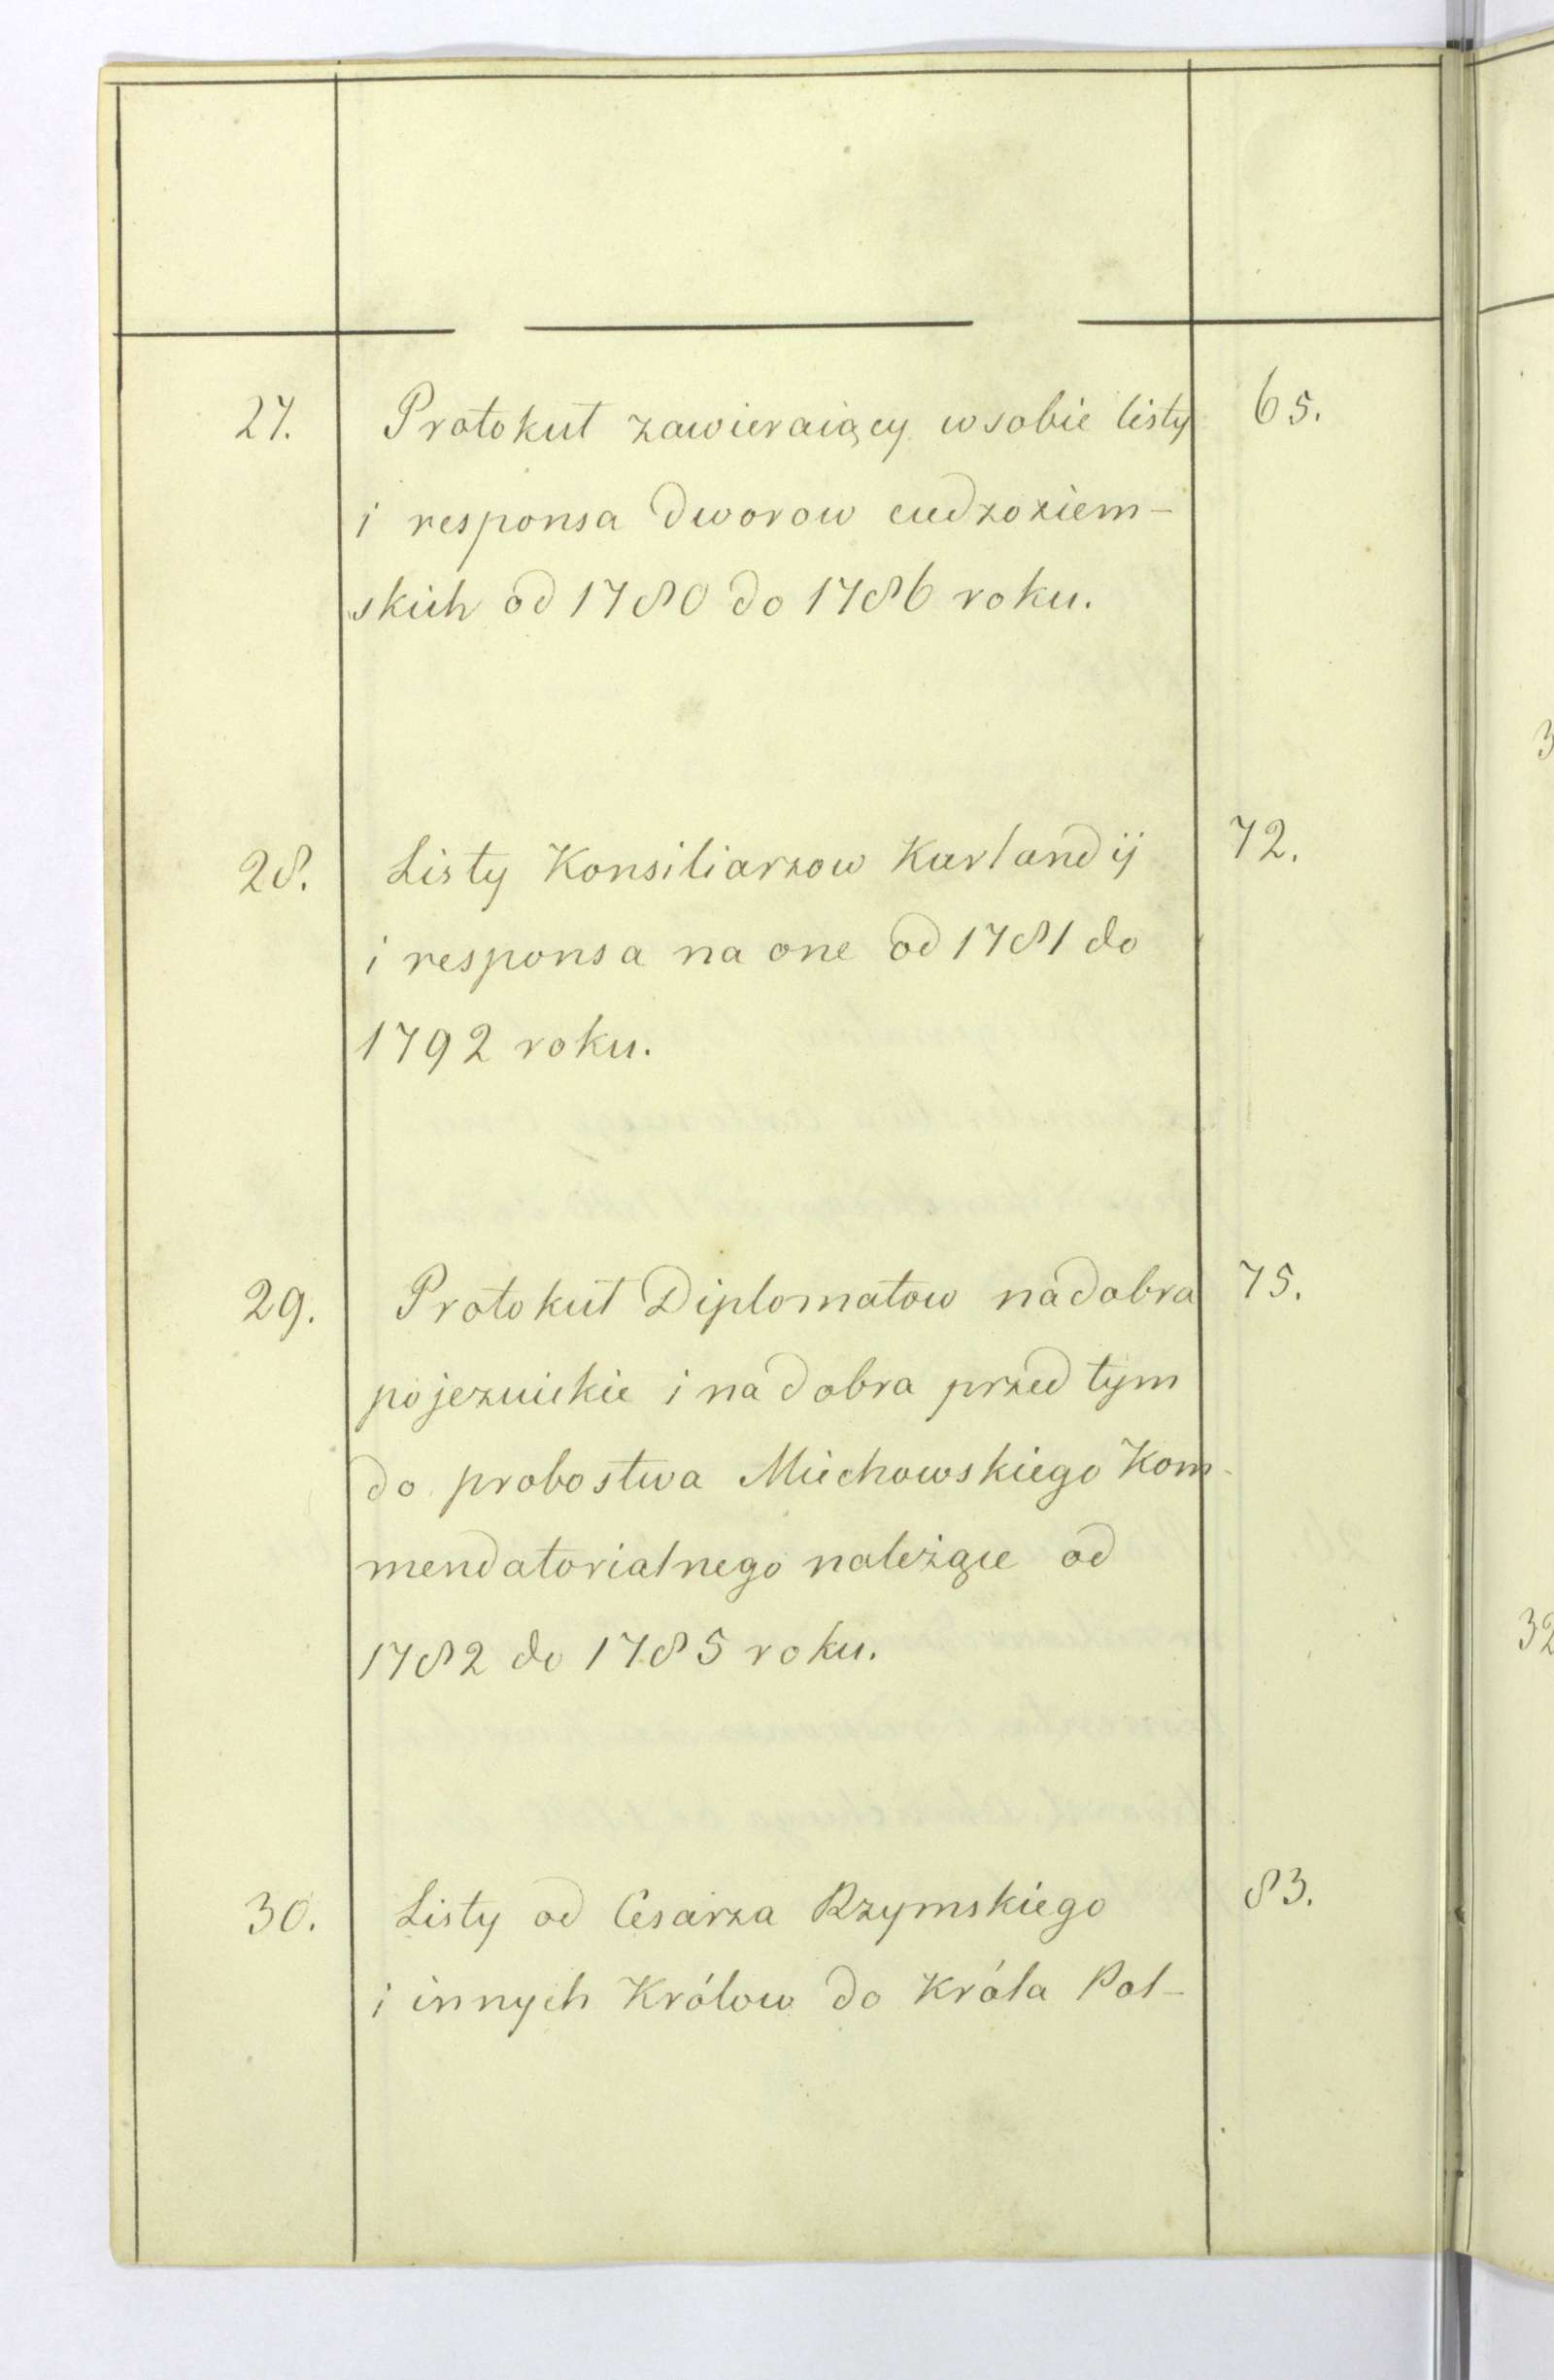 27. Protokuł zawieraiący w sobie listy 65.
i responsa dworow cudzoziem-
skich od 1780 do 1786 roku.
28. Listy Konsiliarzow Kurlandij 72.
i responsa na one od 1781 do
1792 roku.
29. Protokuł Diplomatow na dobra 75.
pojezuickie i na dobra przed tym
do probostwa Miechowskiego Kom-
mendatorialnego należące od
1782 do 1785 roku.
30. Listy od Cesarza Rzymskiego 83.
i innych Królow do Króla Pol-
32